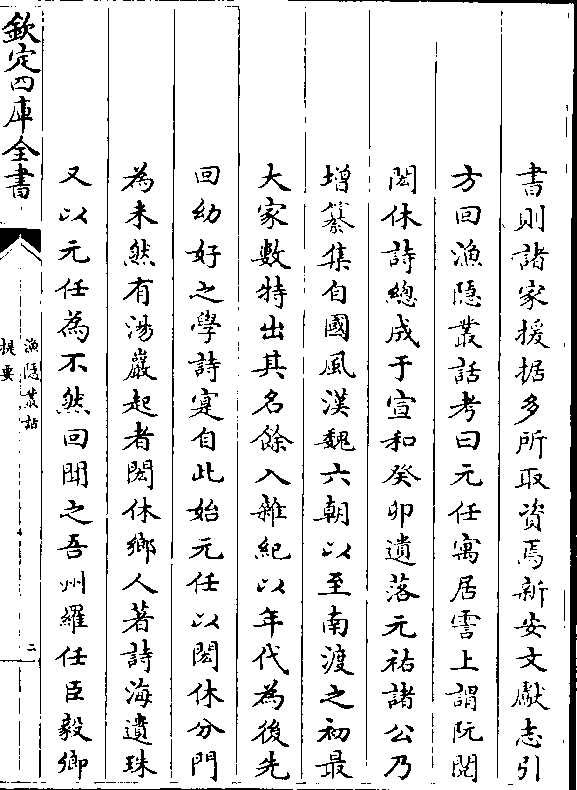 書則諸家援据多所取資焉新安文獻志引
方回漁隱叢話考曰元任寓居霅上謂阮閱
閎休詩總成于宣和癸卯遺落元祐諸公乃
增纂集自國風漢魏六朝以至南渡之初最
大家數特出其名餘入雜紀以年代為後先
回幼好之學詩寔自此始元任以閎休分門
為未然有湯巖起者閎休鄉人著詩海遺珠
又以元任為不然回聞之吾州羅任臣毅卿
欽定四庫全書
漁隱叢話
提要
二